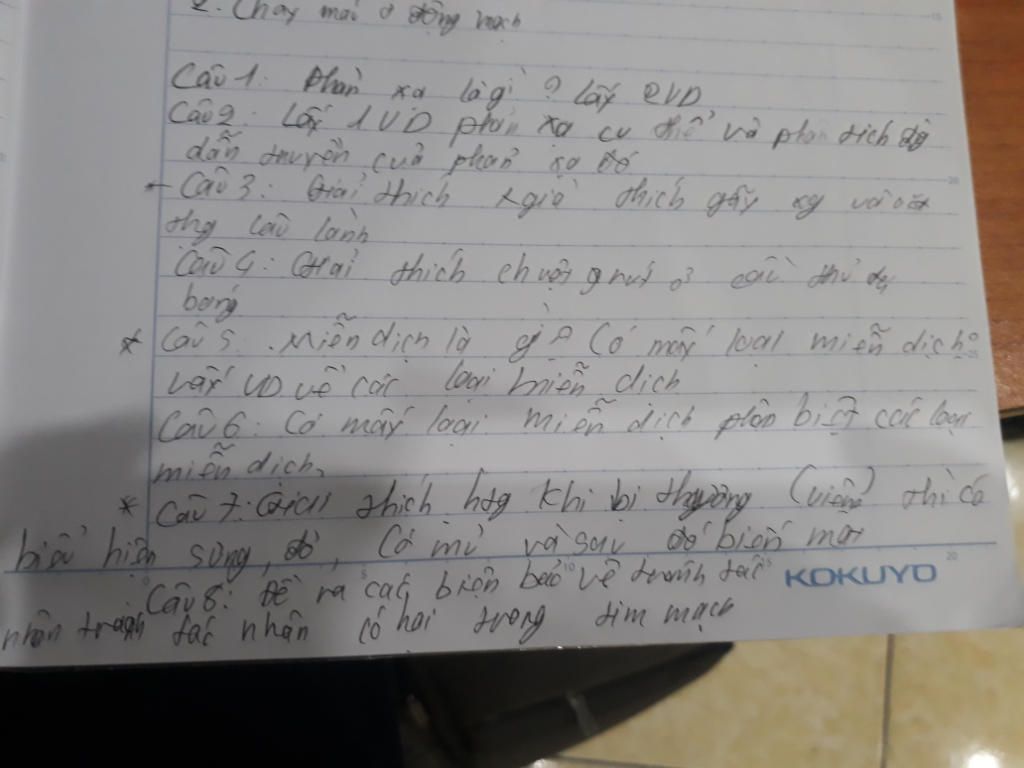 2. Chảy máu ở động mạch
Câu 1: Phản xạ là gì? Lấy 2VD
Câu 2: Lấy 1 VD phản xạ cụ thể và phân tích đg
dẫn truyền của phản xạ đó
Câu 3: Giải thích thích gãy xg và
thg lâu lành
Câu 4: Giải thích chuột rút ở cầu thủ đá
bóng
* Câu 5: Miễn dịch là gì? Có mấy loại miễn dịch?
Lấy VD về các loại miễn dịch
Câu 6: Có mấy loại miễn dịch phân biệt các loại
miễn dịch.
* Câu 7: Giải thích htg khi bị thg (viêm) thì có
biểu hiện sưng, đỏ, có mủ và sau đó biến mất
KOKUYO
Câu 8: Đề ra các biện bảo vệ tránh tác
nhân tránh tác nhân có hại trong tim mạch